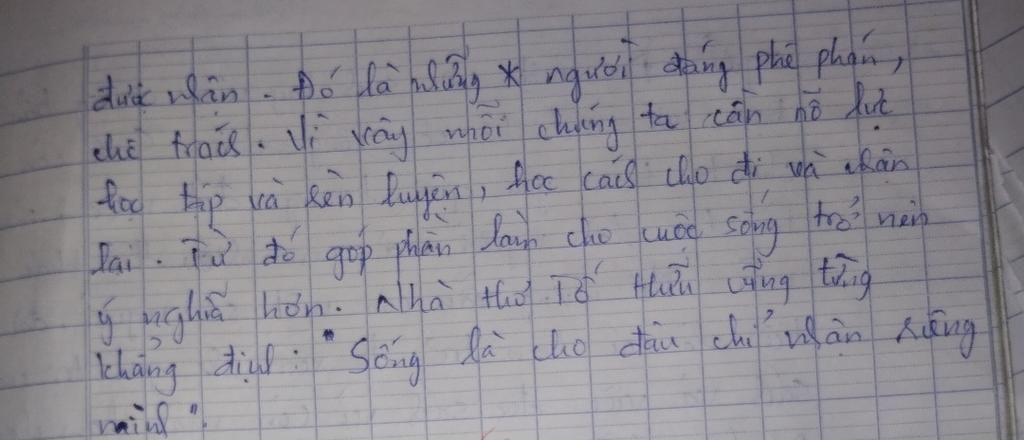 được nhận. Đó là những * người đáng phê phán,
chê trách. Vì vậy mỗi chúng ta cần nỗ lực
học tập và rèn luyện, học cách cho đi và nhận
lại. Từ đó góp phần làm cho cuộc sống trở nên
ý nghĩa hơn. Nhà thơ Tố Hữu cũng từng
khẳng định: "Sống là cho đâu chỉ nhận riêng
mình".